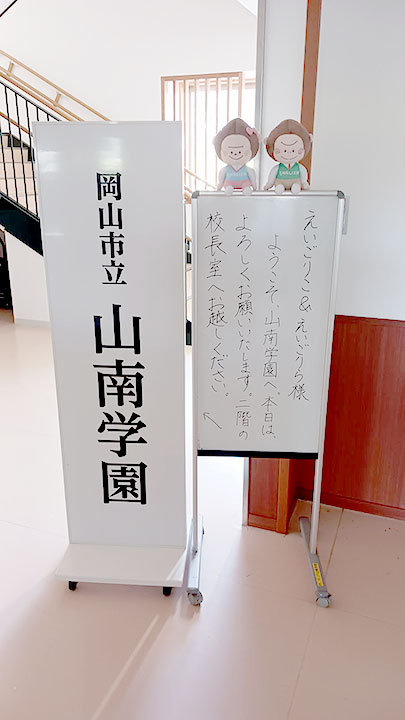 岡山市立 山南学園
えいごりこ&えいごりら様
ようこそ、山南学園へ。本日は、
よろしくお願いいたします。二階の
校長室へお越しください。